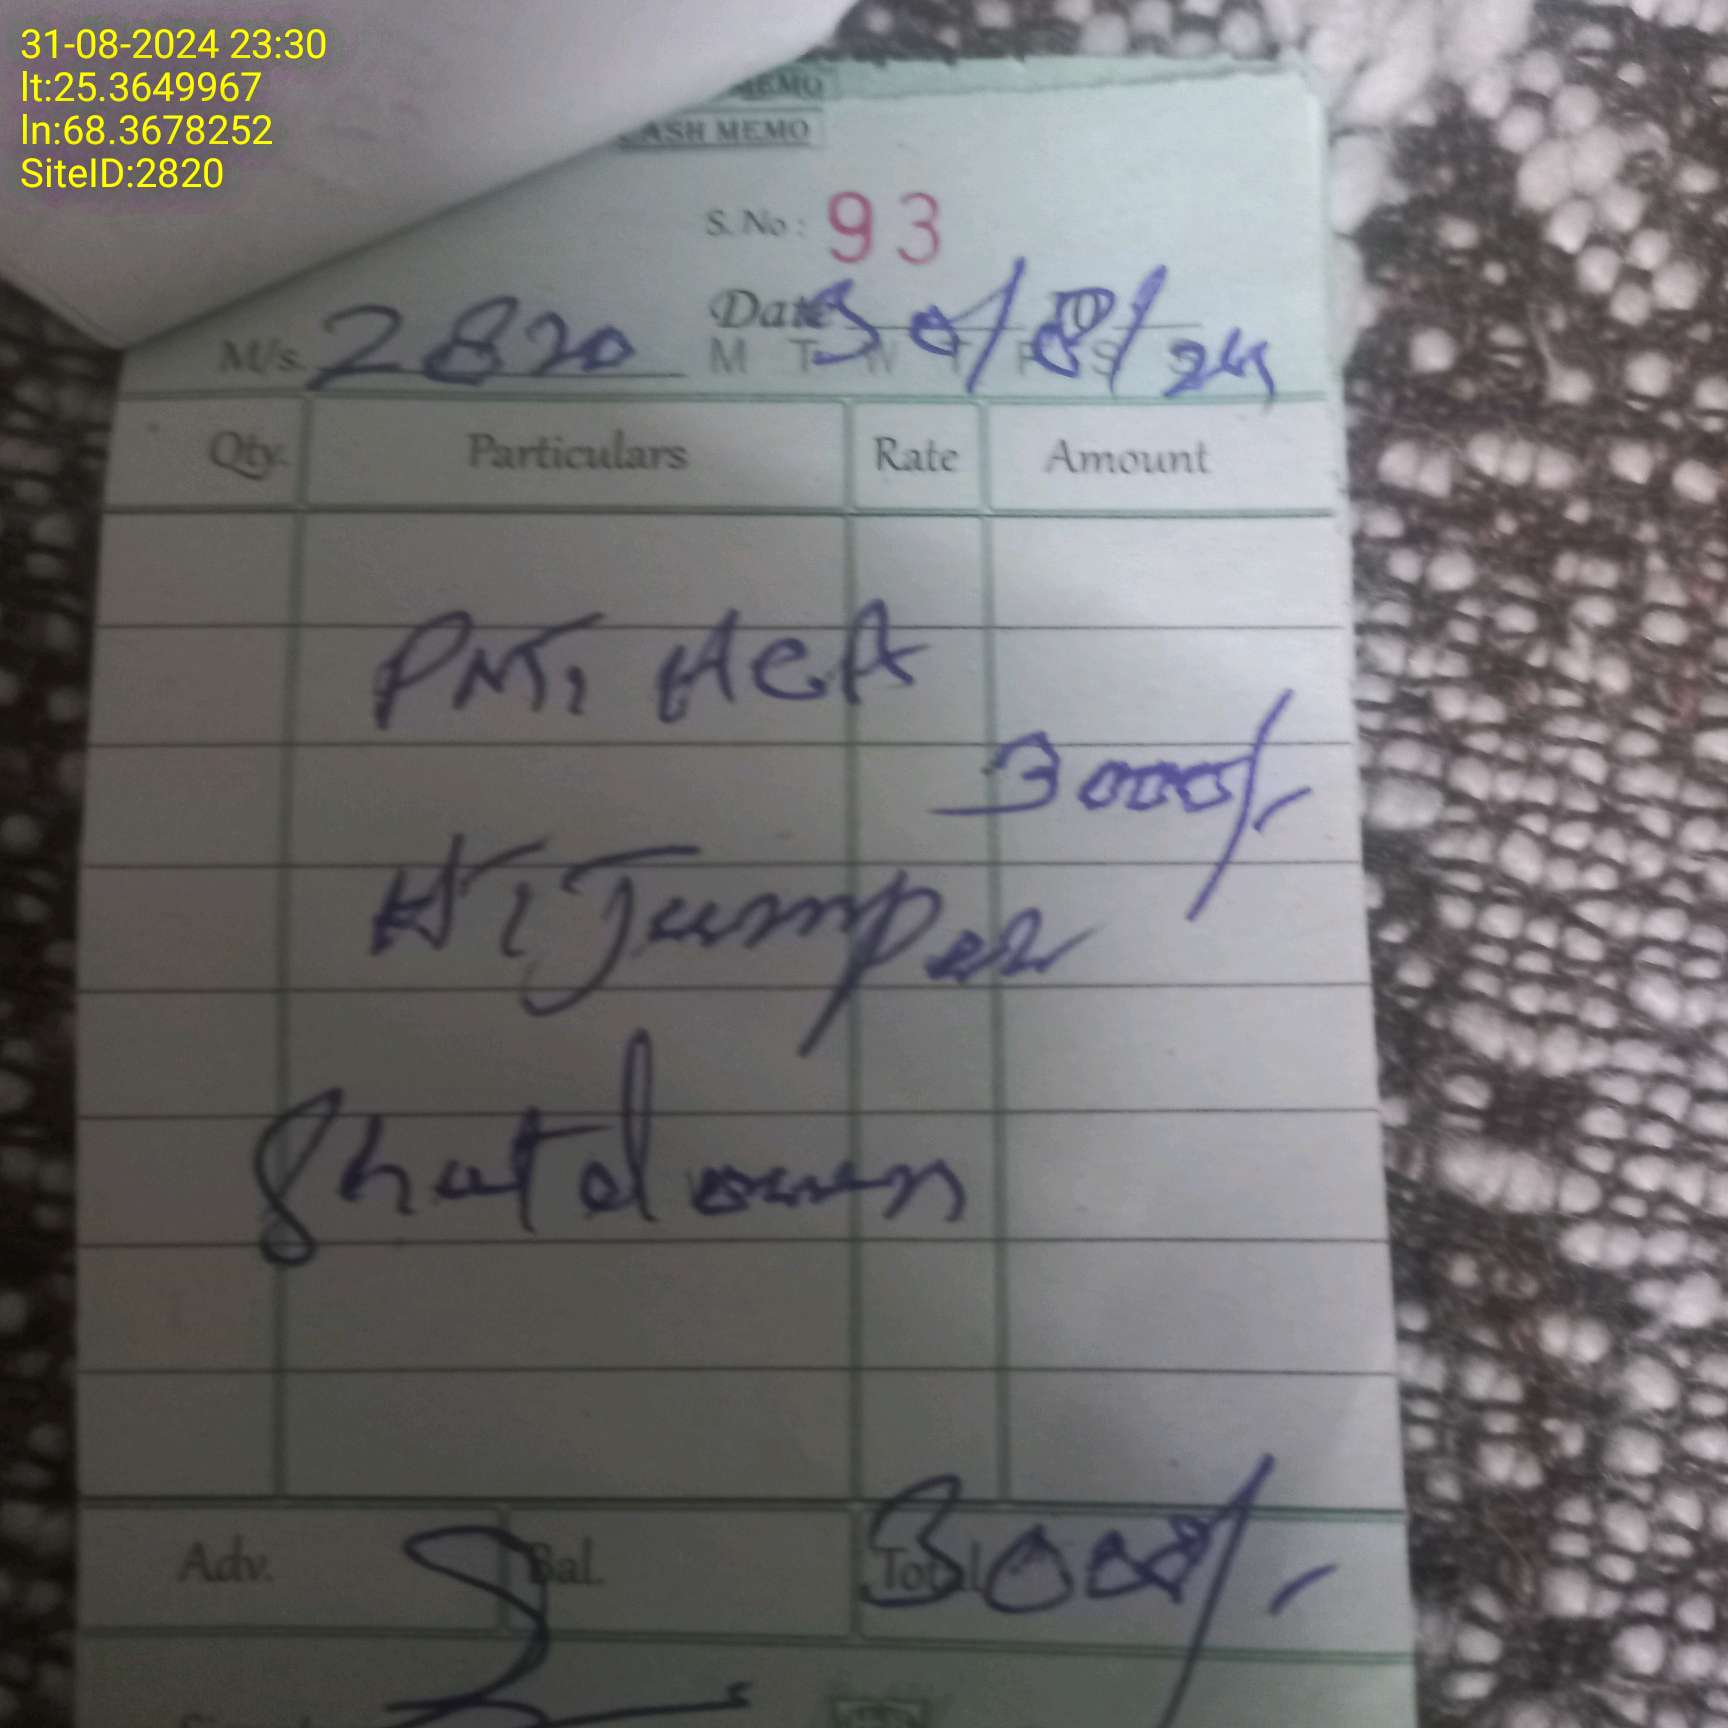 31-08-2024 23:30
lt:25.3649967
ln:68.3678252
SiteID:2820
MEMO
CASH MEMO
S. No: 93
M/s. 2820 Date 30/8/24
M T W T F S S
Qty. Particulars Rate Amount
PMT,
3000/-
Jumper
Shutdown
Adv. Bal. Total 3000/-